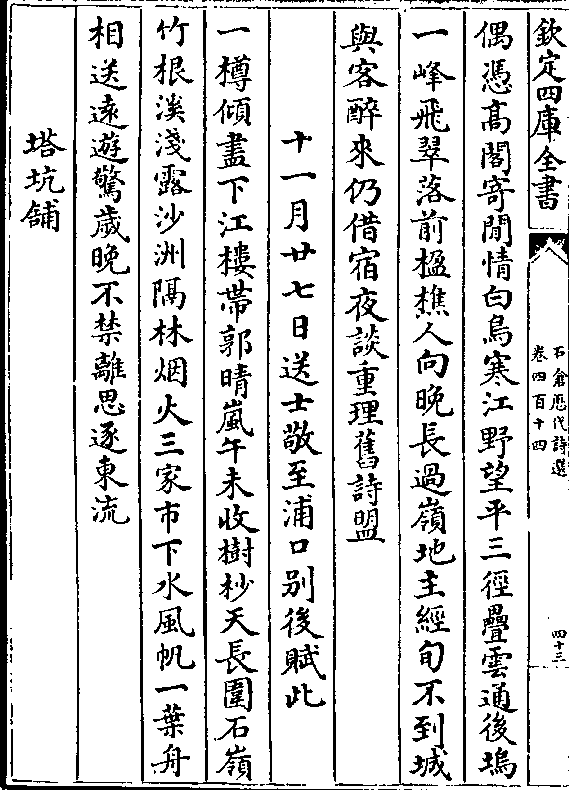 欽定四庫全書
石倉歷代詩選
卷四百十四
四十三
偶憑高閣寄閒情白鳥寒江野望平三徑疊雲通後塢
一峰飛翠落前楹樵人向晚長過嶺地主經旬不到城
與客醉來仍借宿夜談重理舊詩盟
十一月廿七日送士敬至浦口别後賦此
一樽傾盡下江樓帶郭晴嵐午未收樹杪天長圍石嶺
竹根溪淺露沙洲隔林烟火三家市下水風帆一葉舟
相送遠遊驚歲晚不禁離思逐東流
塔坑舖